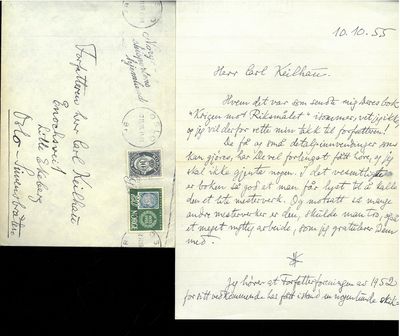 Forfatteren herr Carl Keilhau
Enoksvei 1
Lille Ekeberg
Oslo -
NORGE
NORGE
10.10.55
Herr Carl Keilhau.
Hvem det var som sendte mig Deres bok
"Krigen mot Riksmålet" isommer, vet jeg ikke,
og jeg vil derfor rette min takk til forfatteren!
De få og små detaljinnvendinger som
kan gjøres, har De vel forlengst fått høre, og jeg
skal ikke gjenta noen. I det vesentlige
er boken så god at man får lyst til å kalle
den et lite mesterverk. Og motsatt så mange
andre mesterverker er den, skulde man tro, også
et meget nyttig arbeide, som jeg gratulerer Dem
med.
Jeg hører at Forfatterforeningen av 1952
for sitt vedkommende har fått istand en nogenlunde